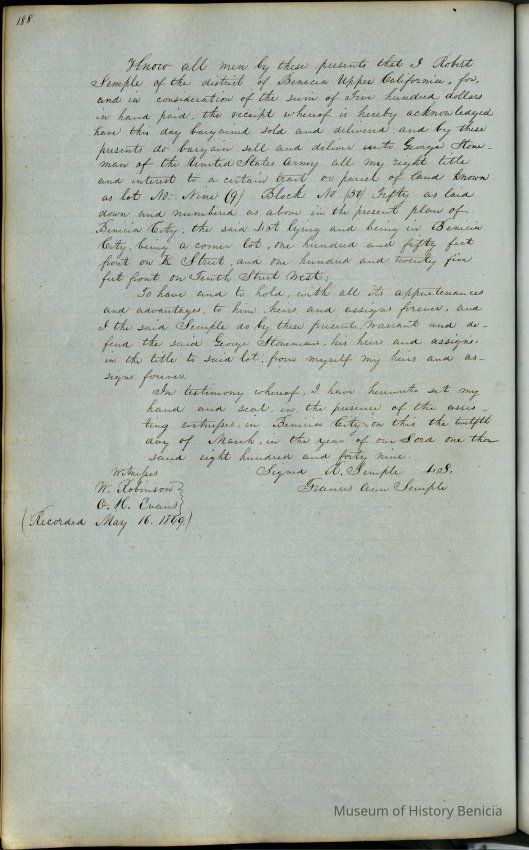 188
Know all men by these presents that I Robert
Semple of the district of Benicia Upper California, for,
and in consideration of the sum of Five hundred dollars
in hand paid. the receipt whereof is hereby acknowledged
have this day bargained sold and delivered and by these
presents do bargain sell and deliver unto George Stone-
man of the United States Army all my right title
and interest to a certain tract or parcel of land known
as lot No: Nine (9) Block No (50) Fifty as laid
down and numbered as above in the present plan of
Benicia City, the said Lot lying and being in Benicia
City, being a corner lot, one hundred and fifty feet
front on K Street, and one hundred and twenty five
feet front on Tenth Street West;
To have and to hold, with all its appurtenances
and advantages, to him, heirs and assigns forever, and
I the said Semple do by these presents, Warrant and de-
fend the said George Stoneman, his heirs and assigns.
in the title to said lot, from myself my heirs and as-
signs forever.
In testimony whereof, I have hereunto set my
hand and seal in the presence of the
witnesses, in Benicia City on this the twelfth
day of March, in the year of our Lord one thou
sand eight hundred and forty nine.
Witnesses Signed R. Semple L.S.
W. Robinson } Frances Ann Semple
O. H. Evans }
(Recorded May 16. 1849)
Museum of History Benicia